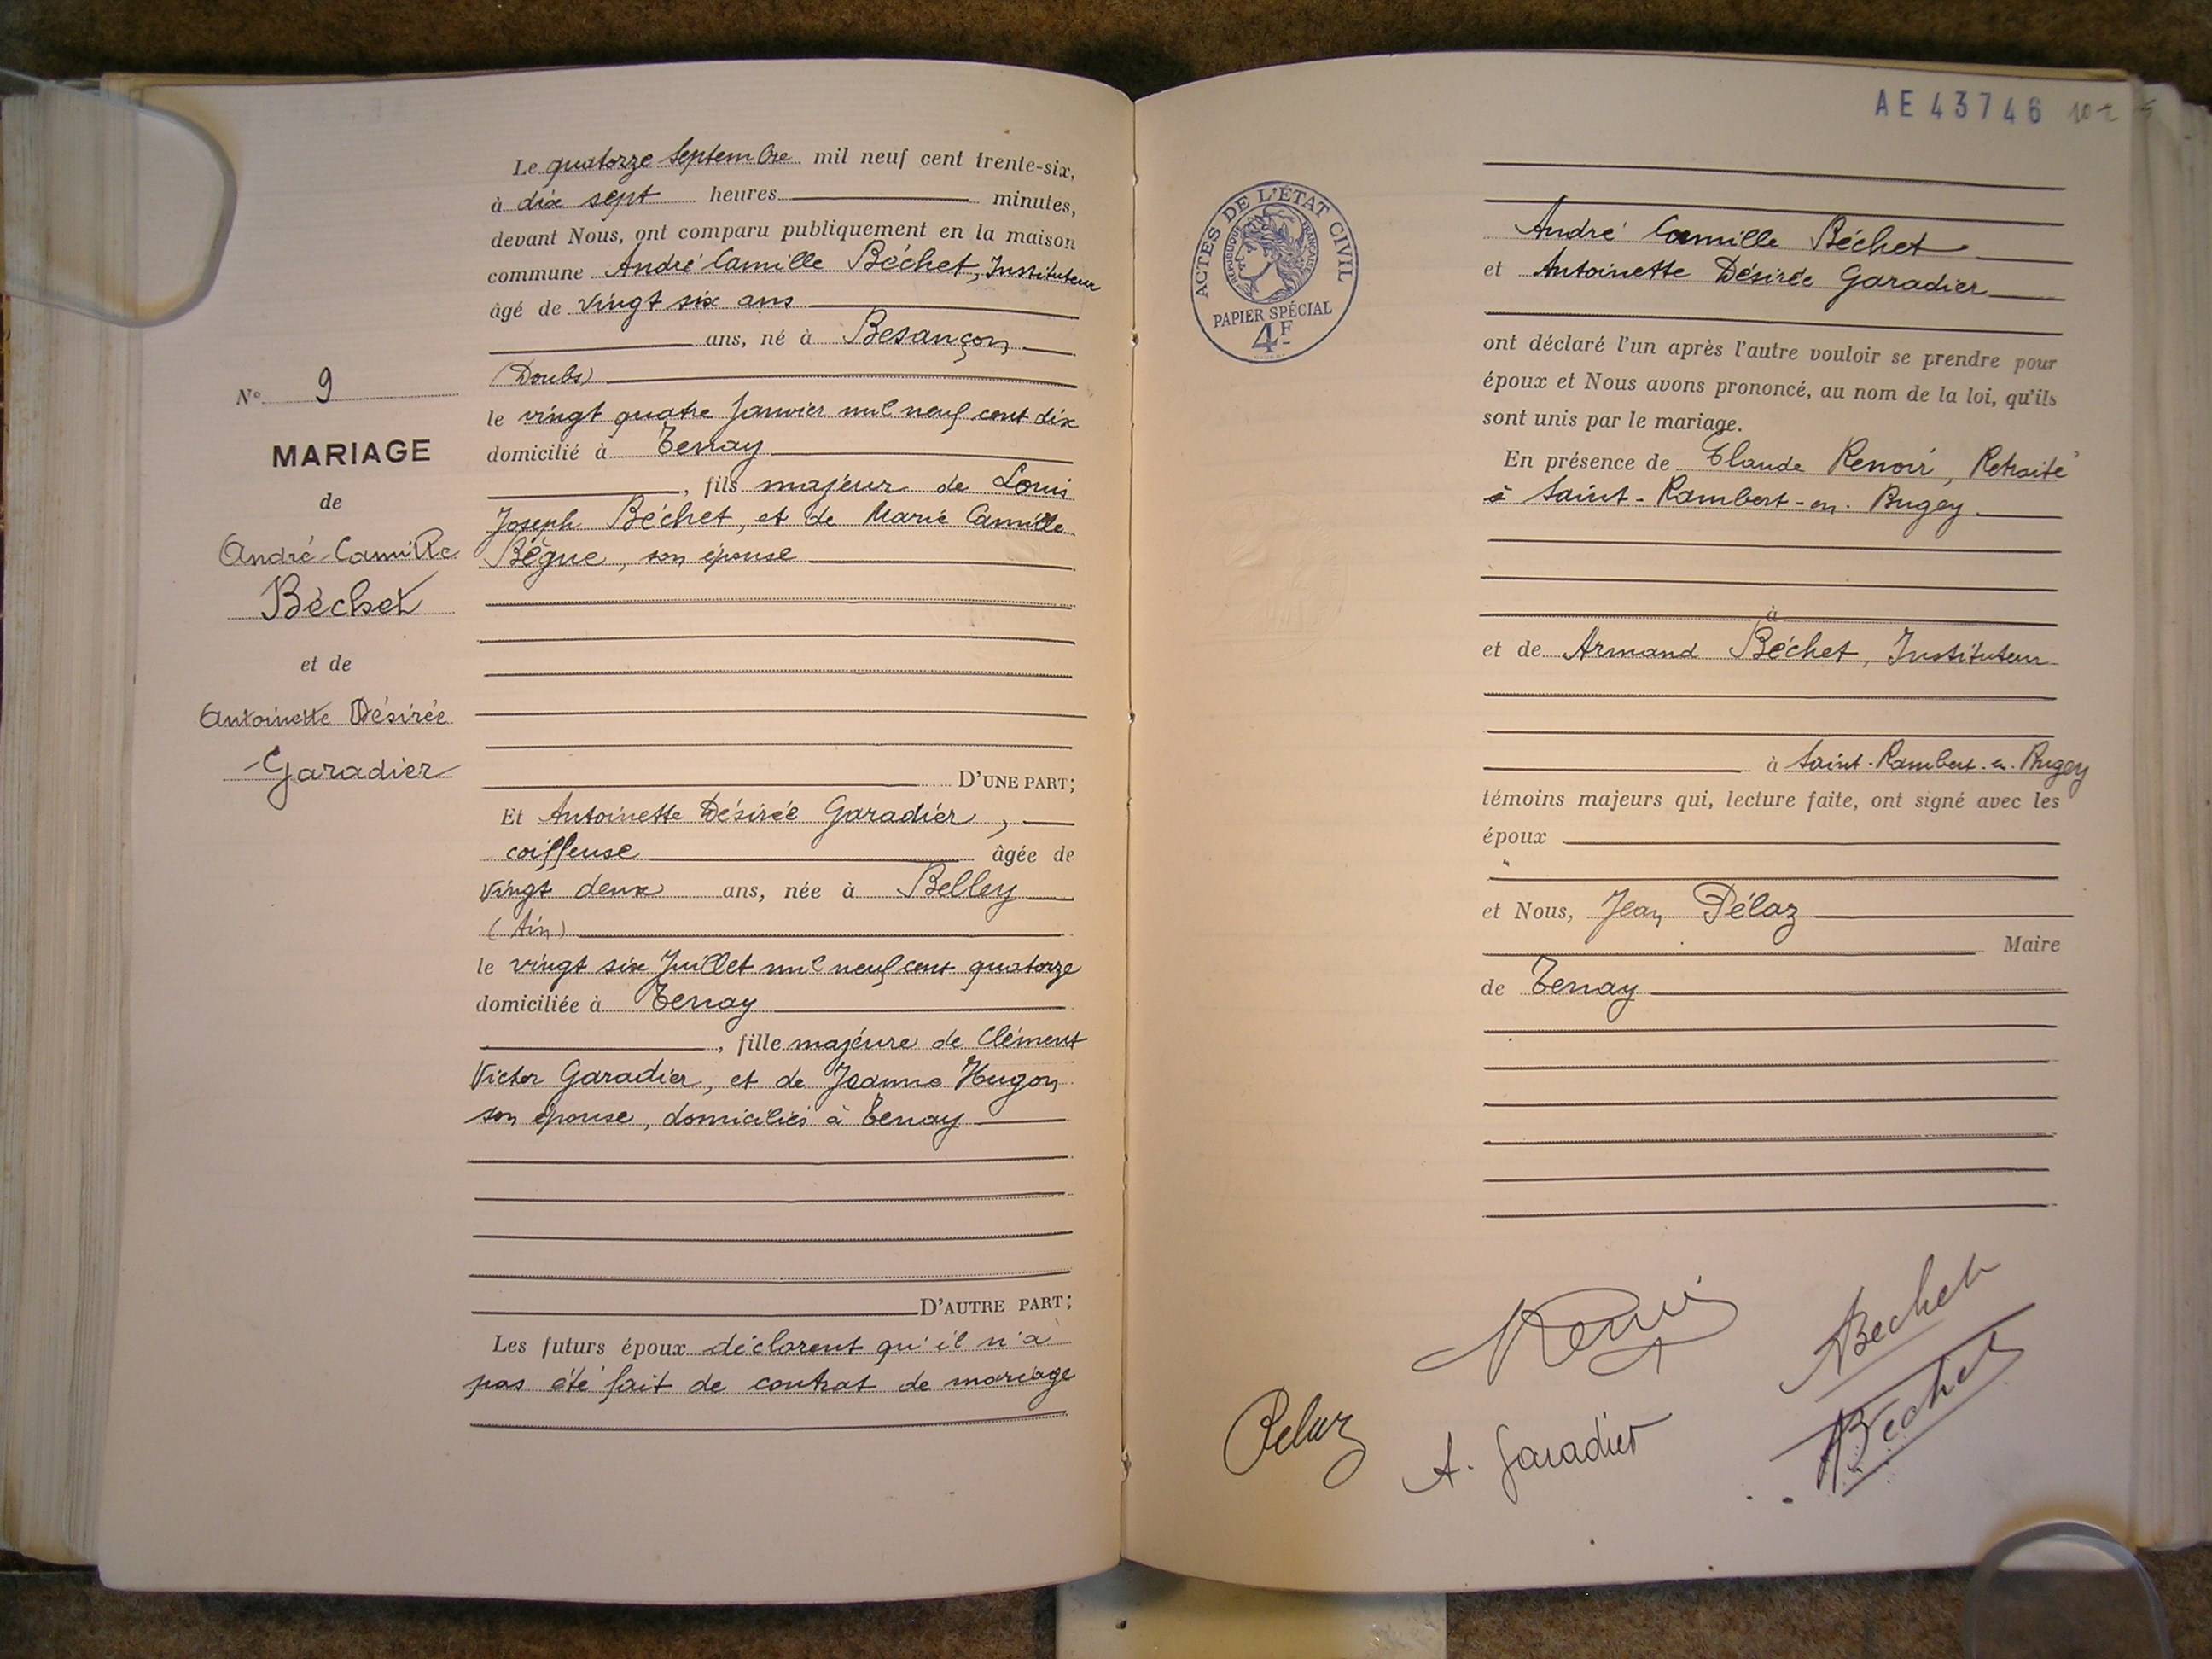 N° 9
MARIAGE
de
André Camille
Béchet
et de
Antoinette Désirée
Garadier
Le quatorze Septembre mil neuf cent trente-six,
à dix sept heures minutes,
devant Nous, ont comparu publiquement en la maison
commune André Camille Béchet, Instituteur
âgé de vingt six ans
ans, né à Besançon
(Doubs)
le vingt quatre Janvier mil neuf cent dix
domicilié à Tenay
, fils majeur de Louis
Joseph Béchet, et de Marie Camille
Bègue, son épouse
D'UNE PART;
Et Antoinette Désirée Garadier,
coiffeuse âgée de
vingt deux ans, née à Belley
(Ain)
le vingt six Juillet mil neuf cent quatorze
domiciliée à Tenay
, fille majeure de Clément
Victor Garadier, et de Jeanne Hugon
son épouse, domiciliés à Tenay
D'AUTRE PART;
Les futurs époux déclarent qu'il n'a
pas été fait de contrat de mariage
AE43746
ACTES DE L'ÉTAT CIVIL
RÉPUBLIQUE FRANÇAISE
PAPIER SPÉCIAL
4F
André Camille Béchet
et Antoinette Désirée Garadier
ont déclaré l'un après l'autre vouloir se prendre pour
époux et Nous avons prononcé, au nom de la loi, qu'ils
sont unis par le mariage.
En présence de Claude Renoir, Retraité
à Saint-Rambert-en-Bugey
à
et de Armand Béchet, Instituteur
à Saint-Rambert-en-Bugey
témoins majeurs qui, lecture faite, ont signé avec les
époux
et Nous, Jean Pélaz
Maire
de Tenay
Béchet
Béchet
Pelaz
A. Garadier